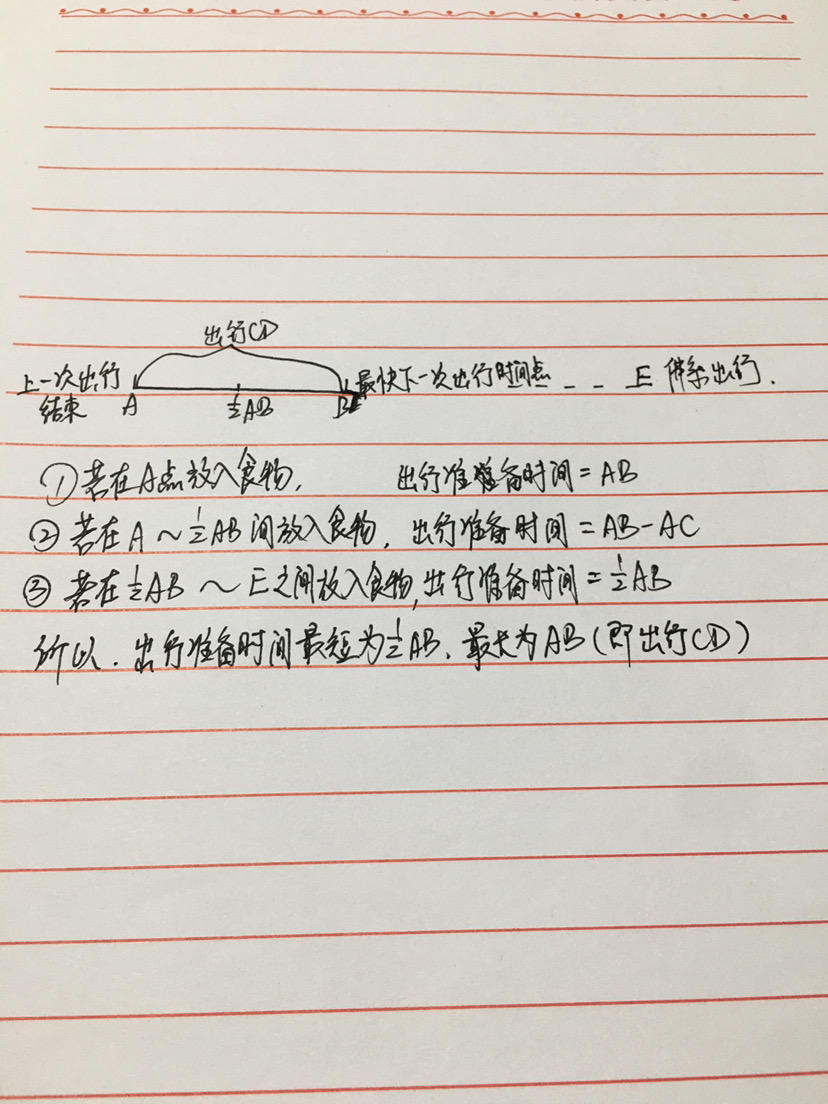 出行CD
上一次出行 最快下一次出行时间点 _ _ E 佛系出行.
结束 A ½AB B
①若在A点放入食物, 出行准备时间=AB
②若在A~½AB间放入食物, 出行准备时间=AB-AC
③若在½AB~E之间放入食物,出行准备时间=½AB
所以.出行准备时间最短为½AB.最大为AB(即出行CD)